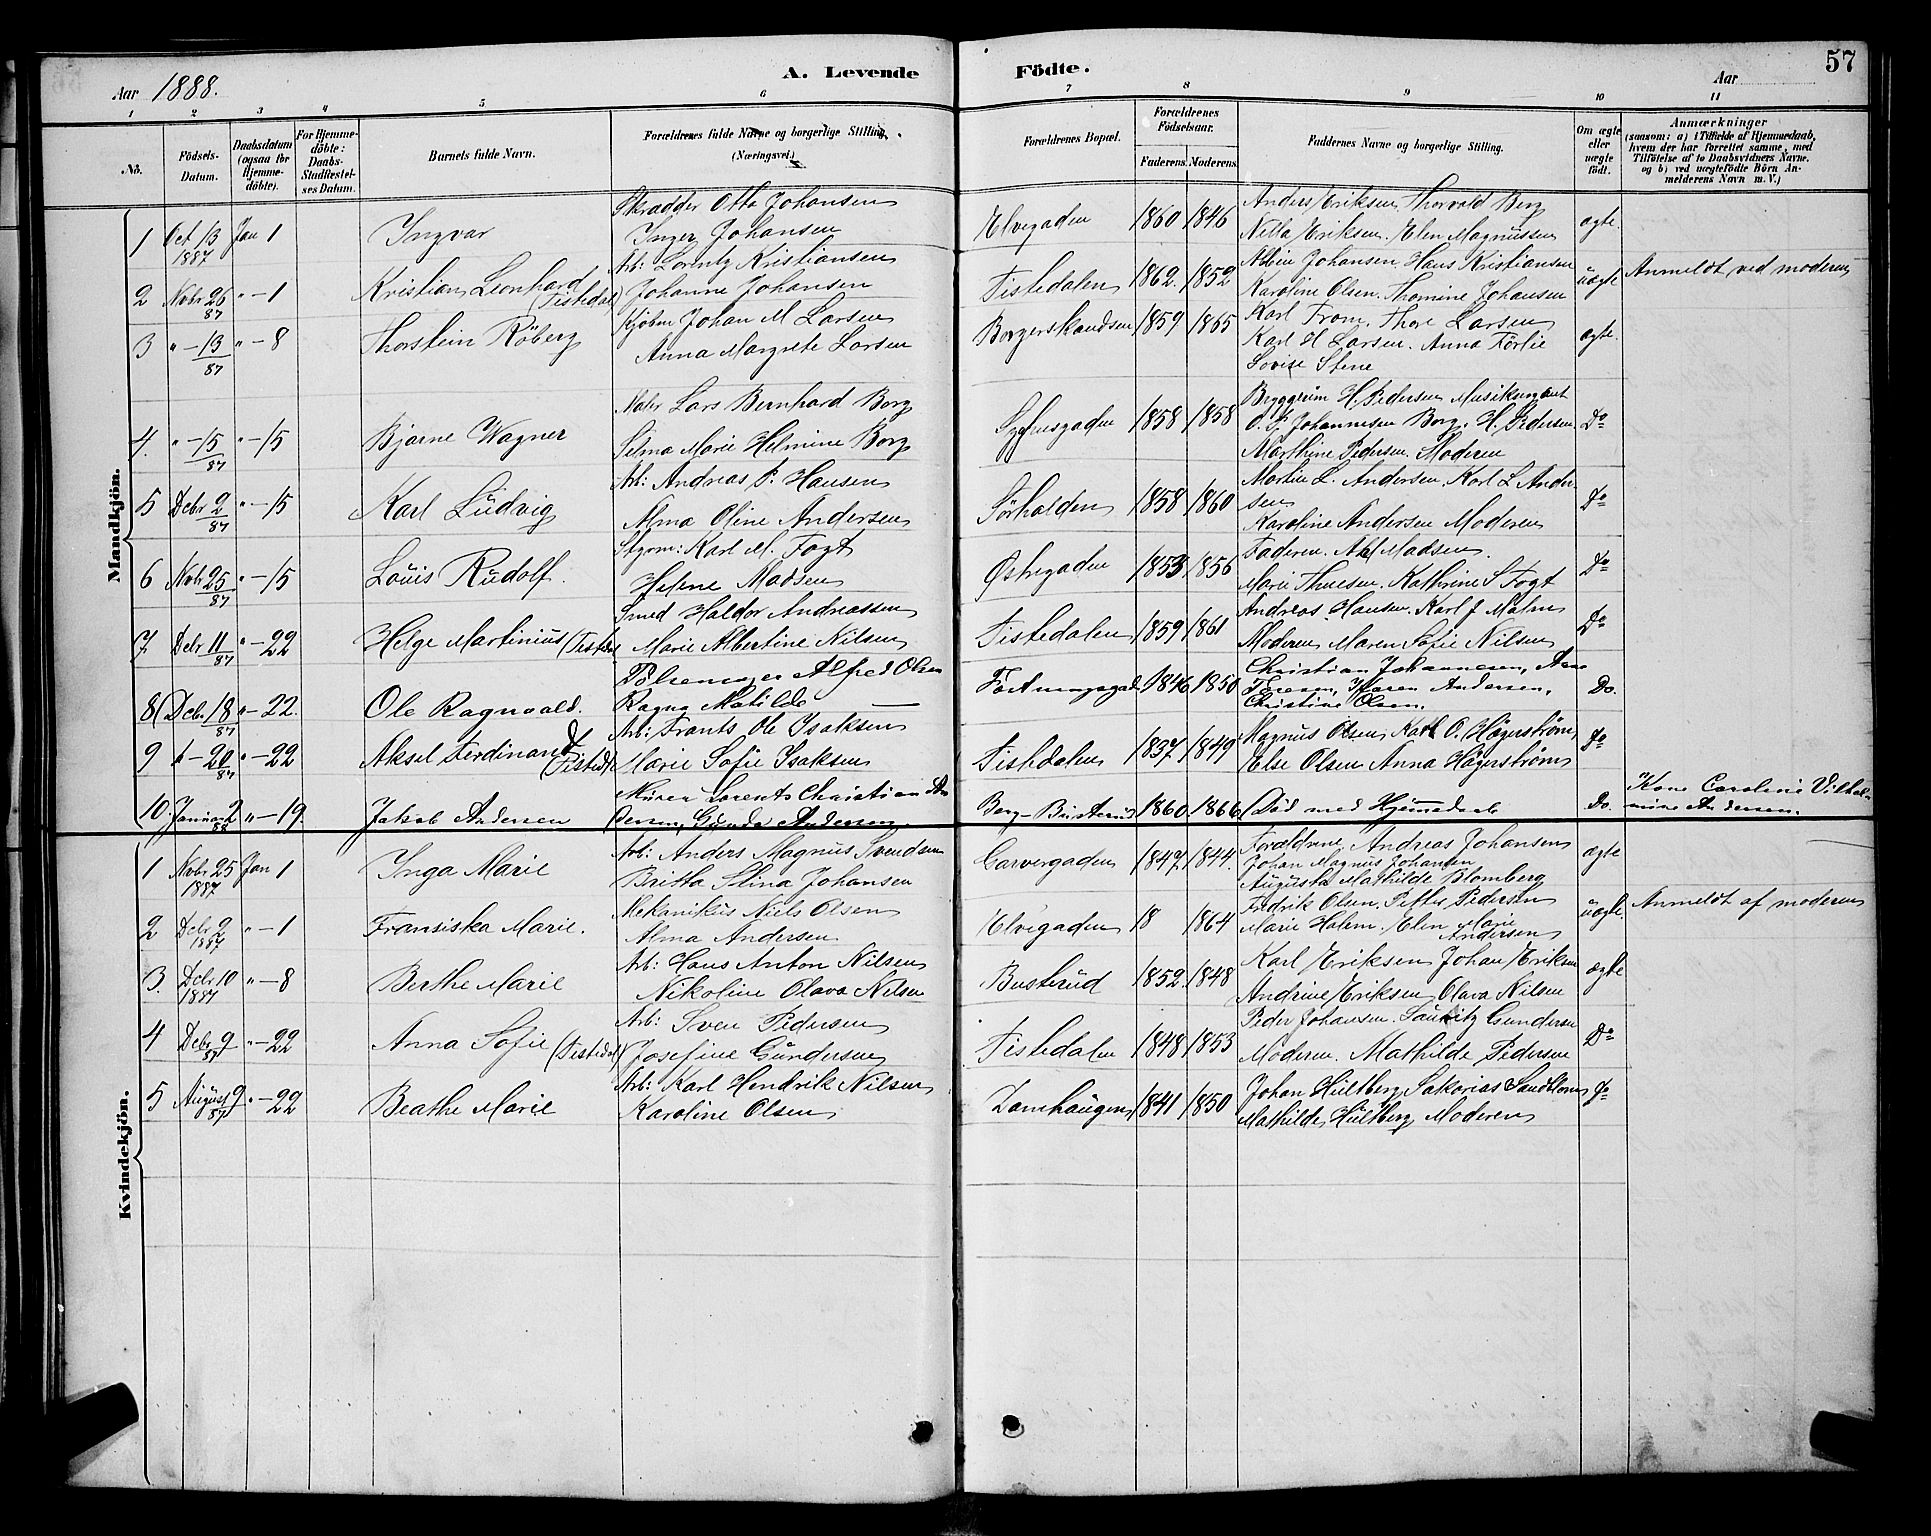 57
Aar 1888. A. Levende Födte. Aar
1 2 3 4 5 6 7 8 9 10 11
No. Födsels-Datum. Daabsdatum (ogsaa for Hjemme-döbte). For Hjemme-döbte: Daabs-Stadfæstel-ses Datum. Barnets fulde Navn. Forældrenes fulde Navne og borgerlige Stilling. (Næringsvei.) Forældrenes Bopæl. Forældrenes Födselsaar. Faderens. Moderens. Faddernes Navne og borgerlige Stilling. Om ægte eller uægte födt. Anmærkninger (saasom: a) i Tilfælde af Hjemmedaab, hvem der har forrettet samme, med Tilföielse af to Daabsvidners Navne, og b) ved uægtefödte Börn Anmelderens Navn m. V.)
Mandkjön.
Skrædder Otto Johansen Anders Eriksen, Thorvald Berg
1 Oct 13 1887 Jan 1 Ingvar Inger Johansen Elvegaden 1860 1846 Nilla Eriksen. Elen Magnussen ægte.
Arb: Lorentz Kristiansen Albin Johansen. Hans Kristiansen
2 Nobr 26 87 " - 1 Kristian Leonhard (Tistedal) Johanne Johansen Tistedalen 1862. 1852 Karoline Olsen. Thomine Johansen uægte Anmeldt ved moderen
Kjöbm Johan M Larsen Karl From. Thore Larsen
3 " - 13 87 " - 8 Thorstein Röberg Anna Margrete Larsen Borgerskandsen 1859 1865 Karl H Larsen. Anna Förlie ægte.
Lovise Stene
Maler Lars Bernhard Borg Bryggerim H. Pedersen Musikermant
4. " - 15 87 " - 15 Bjarne Wagner Selma Marie Helmine Borg Sydnesgaden 1858 1858 O. P. Johannesen Borg. H. Pedersen Do
Marthine Pedersen. Moderen
Arb: Andreas P. Hansen Martin L. Andersen. Karl L Ander-
5 Debr 2 87 " - 15 Karl Ludvig Alma Oline Andersen Sörhalden 1858 1860 sen Do
Karoline Andersen Moderen
Styrm: Karl M. Fogt Faderen. Madsen.
6 Nobr 25 87 " - 15 Louis Rudolf. Helene Madsen Østregaden 1853 1856 Marie Thuesen. Kathrine S Fogt Do
Smed Haldor Andreassen Andreas Hansen. Karl J Malm
7 Debr 11 87 " - 22 Helge Martinius (Tistedal Marie Albertine Nilsen Tistedalen 1859 1861 Moderen Maren Sofie Nilsen Do
Pölsemager Alfred Olsen Christian Johannesen,
8 Debr. 18 87 " - 22. Ole Ragnvald. Ragna Matilde — 1846 1850 Karen Andersen, Do.
Christine Olsen.
Arb: Frants Ole Isaksen Magnus Olsen, Karl O. Hägerström
9 " - 20 87 " - 22 Aksel Ferdinand (Tistedl. Marie Sofie Isaksen Tistedalen 1837 1849 Else Olsen Anna Hägerström Do
Murer Lorents Christian An- Kone Caroline Vilhel-
10. Januar 2 88 " - 19. Jakob Andersen dersen, Gunda Andersen. Berg - Busterud 1860. 1866. Död med Hjemmedaab Do. mine Andersen.
Kvindekjön.
Arb: Anders Magnus Svendsen Forældrene, Andreas Johansen
1 Nobr 25 1887 Jan 1 Inga Marie Britta Stina Johansen Garvergaden 1847. 1844. Johan Magnus Johansen ægte
Augusta Mathilde Blomberg
Mekanikus Niels Olsen Fredrik Olsen. Petter Pedersen
2 Debr 2 1887 " - 1 Fransiska Marie. Alma Andersen Elvegaden 18 1864 Marie Holem. Elen Marie Andersen uægte Anmeldt af moderen
Arb: Hans Anton Nilsen Karl Eriksen Johan Eriksen
3. Debr 10 1887 " - 8 Berthe Marie Nikoline Olava Nilsen Busterud 1852. 1848 Andrine Eriksen Olava Nilsen ægte
Arb: Sven Pedersen Peder Johansen. Lauritz Gundersen
4 Debr 9 87 " - 22 Anna Sofie (Tistedal) Josefine Gundersen Tistedalen 1848 1853 Moderen. Mathilde Pedersen Do
Arb: Karl Hendrik Nilsen Johan Hultberg Sakarias Sandblom
5 August 9 87 " - 22 Beathe Marie Karoline Olsen Damhaugen 1841 1850 Mathilde Hultberg Moderen Do